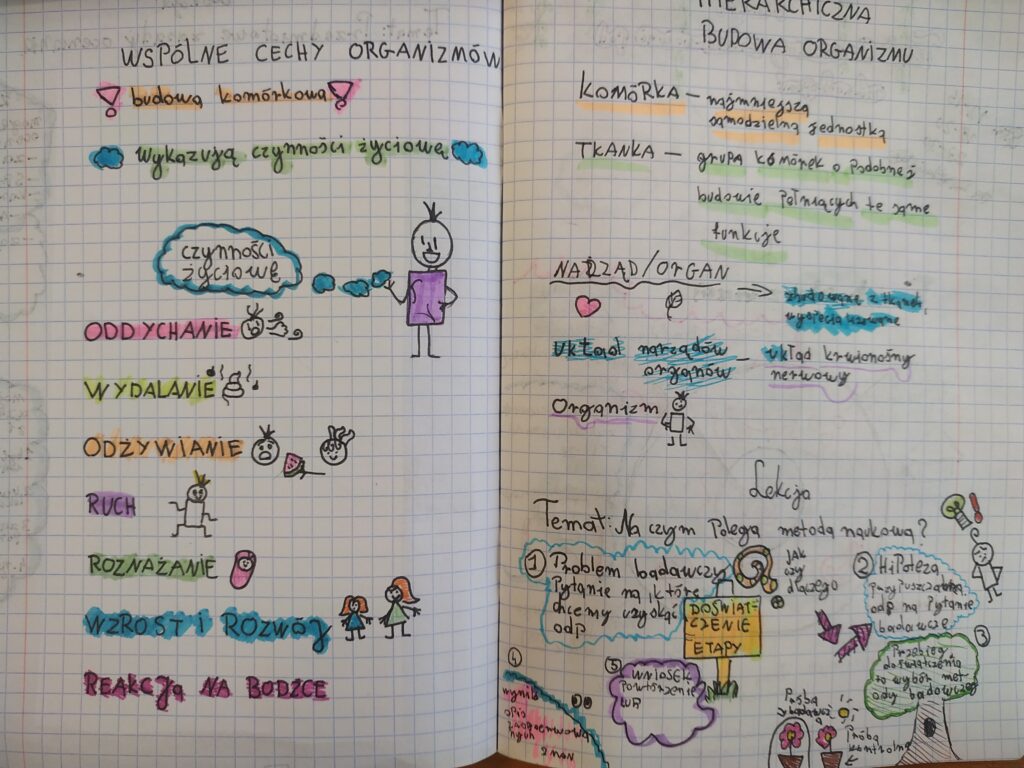 WSPÓLNE CECHY ORGANIZMÓW
budowa komórkowa
wykązują czynności życiowę
czynności
życiowę
ODDYCHANIE
WYDALANIE
ODŻYWIANIE
RUCH
ROZNAŻANIE
WZROST i ROZWÓJ
REAKCJA NA BODŹCE
HIERARCHICZNA
BUDOWA ORGANIZMU
KOMÓRKA – najmniejszą
samodzielną jednostką
TKANKA – grupa komórek o podobnej
budowie pełniących te same
funkcje
NARZĄD/ORGAN
zbudowane z tkanek,
układ narządów – układ krwionośny
organów nerwowy
Organizm
Lekcja
Temat: Na czym Polega metoda naukowa?
1 Problem badawczy
Pytanie na które
chcemy uzyskać
odp
JAK
czy
dlaczego
DOŚWIAT-
CZENIE
ETAPY
2 HiPoteza
odp na Pytanie
badawcze
3
Przebieg
doświatczenia
to wybór met-
ody badawczej
4
wynik
opis
5
WNIOSEK
Powtórzenie
Próba
badawcza
Próba
kontrolna